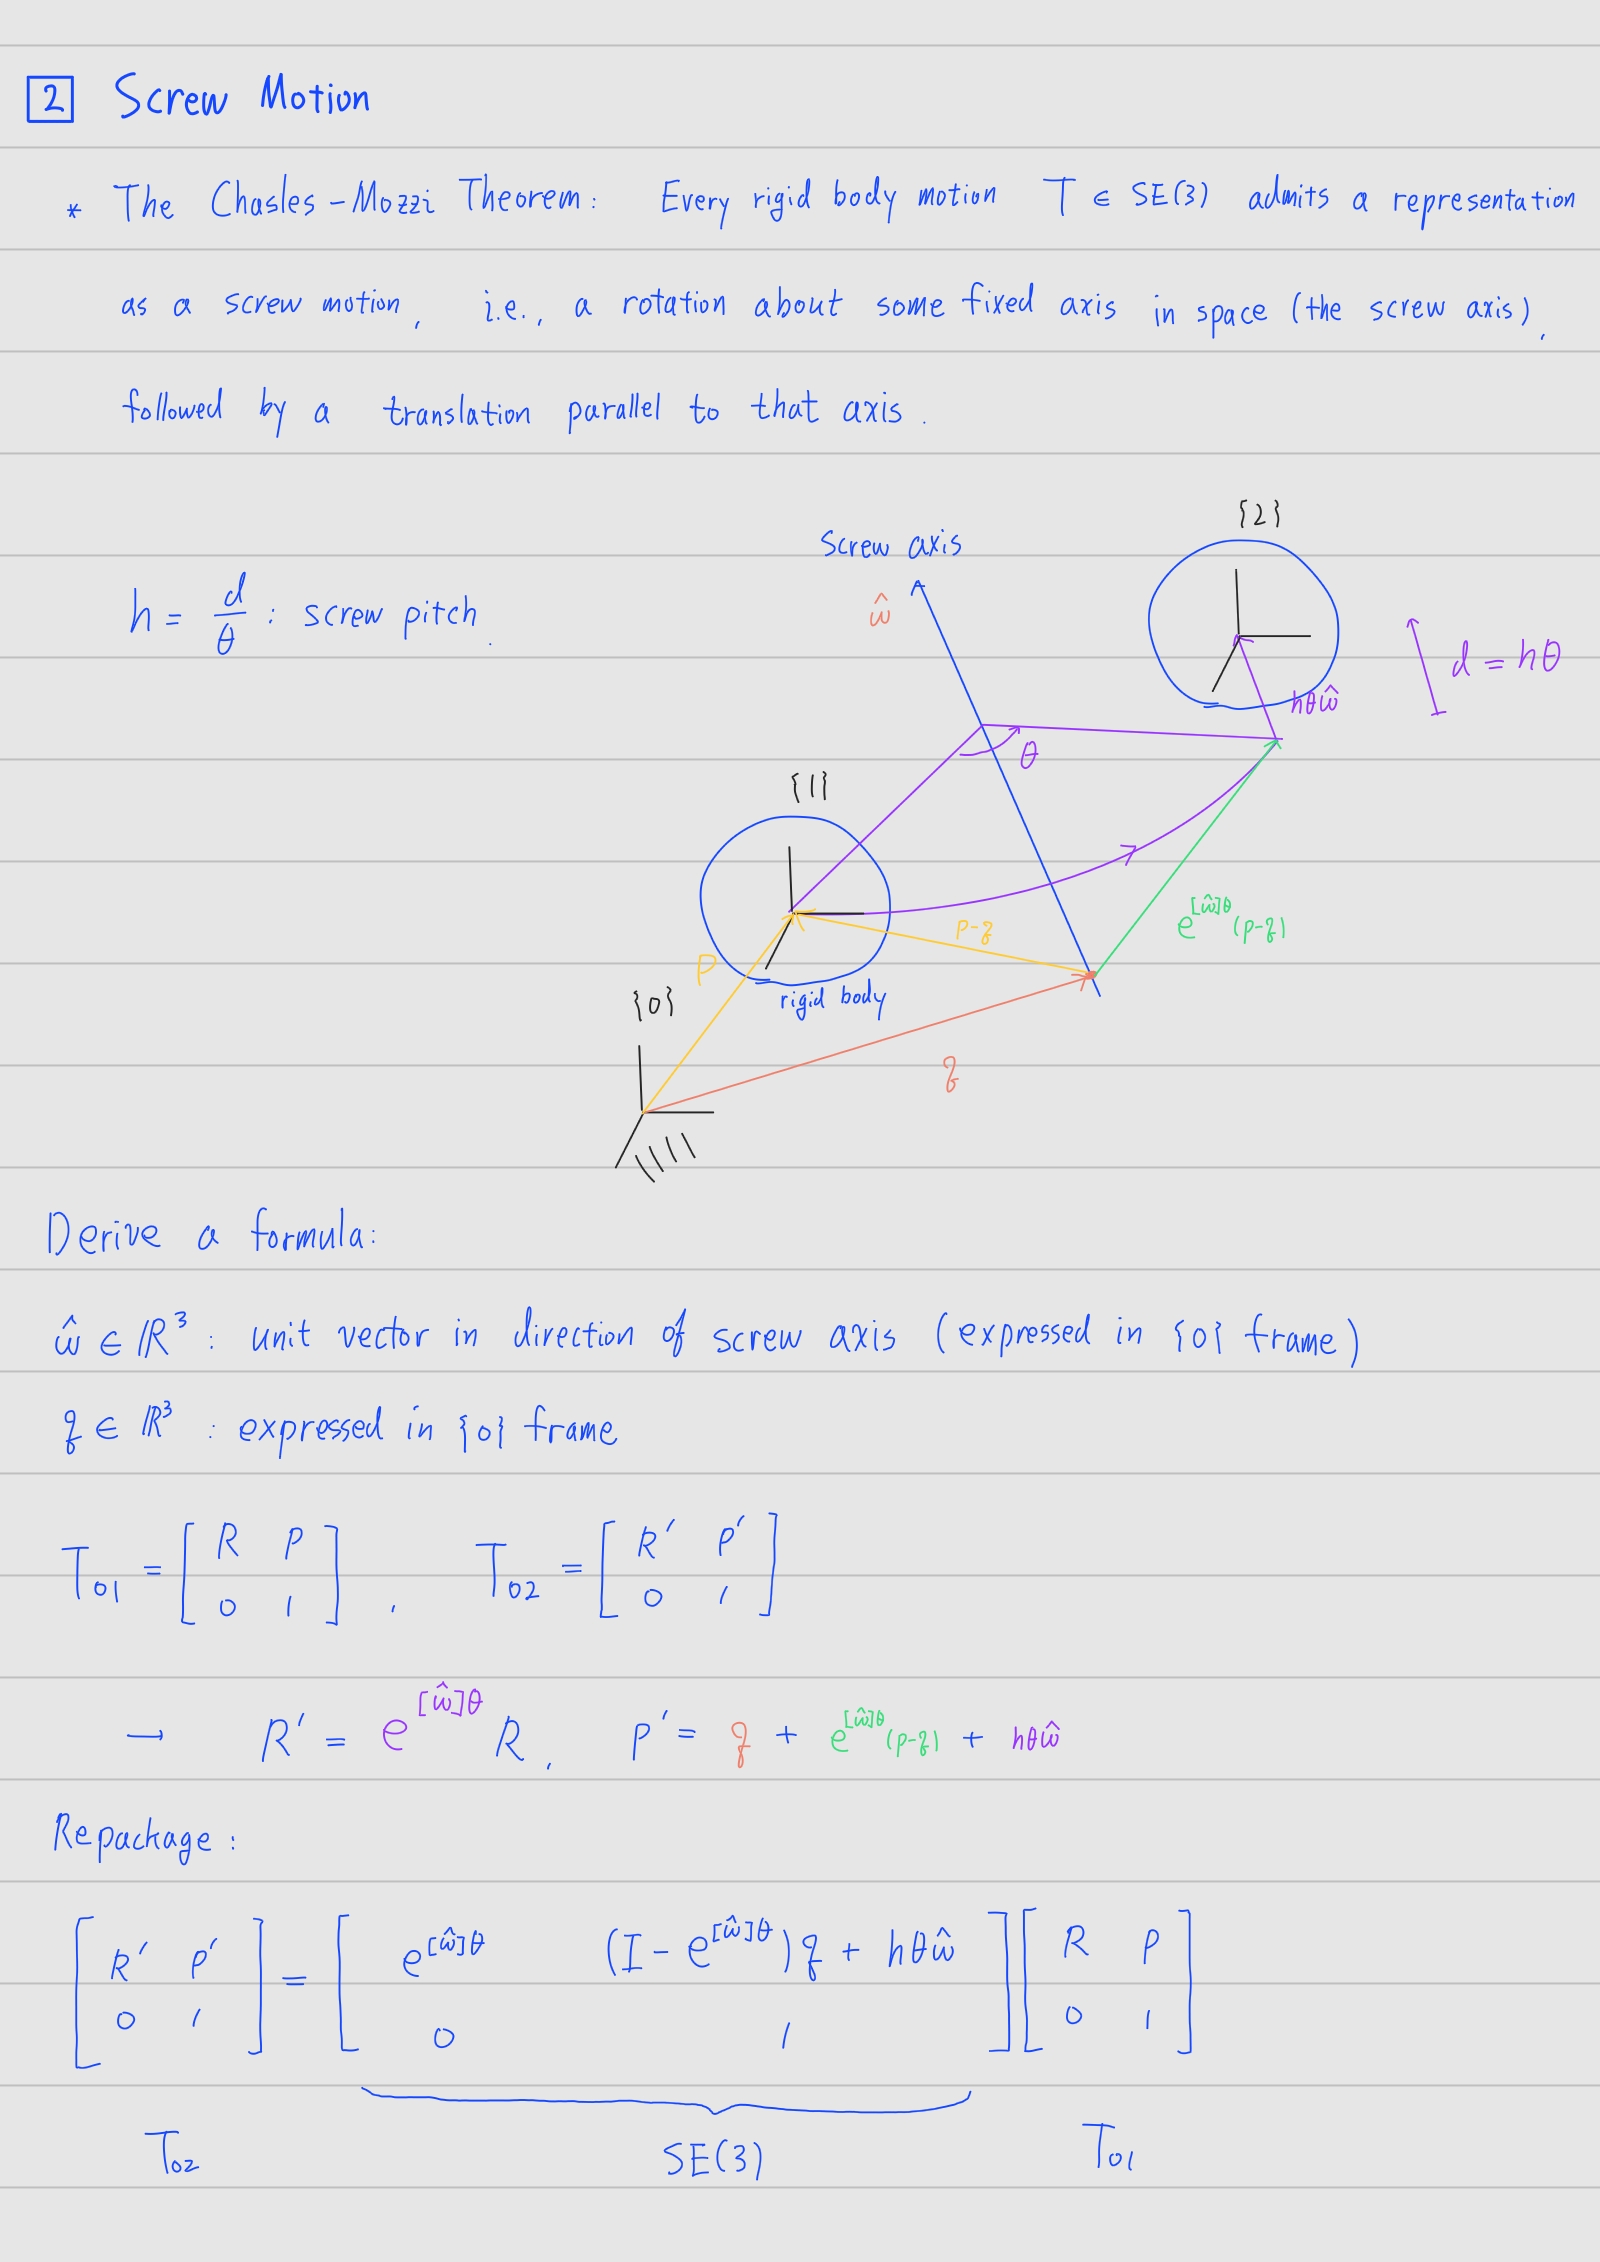 2 Screw Motion
* The Chasles-Mozzi Theorem: Every rigid body motion T ∈ SE(3) admits a representation
as a screw motion, i.e., a rotation about some fixed axis in space (the screw axis),
followed by a translation parallel to that axis.
{2}
screw axis
ŵ
h = d/θ : screw pitch.
d = hθ
hθŵ
θ
{1}
e^{[ŵ]θ}(p-q)
p-q
p
{0}
rigid body
q
Derive a formula:
ŵ ∈ ℝ³ : unit vector in direction of screw axis (expressed in {0} frame)
q ∈ ℝ³ : expressed in {0} frame
T₀₁ = [ R p ; 0 1 ] , T₀₂ = [ R′ p′ ; 0 1 ]
→ R′ = e^{[ŵ]θ} R , p′ = q + e^{[ŵ]θ}(p-q) + hθŵ
Repackage :
[ R′ p′ ; 0 1 ] = [ e^{[ŵ]θ} (I - e^{[ŵ]θ})q + hθŵ ; 0 1 ] [ R p ; 0 1 ]
T₀₂ SE(3) T₀₁